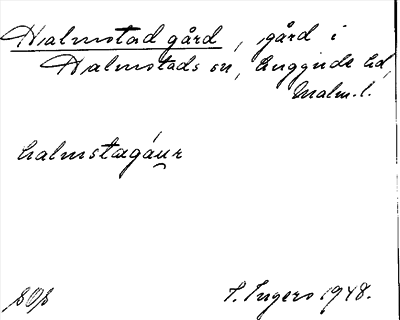 Halmstad gård, gård i
Halmstads sn, Luggude hd,
Malm. l.
halmstagáu̯r
SOS
I. Ingers 1948.